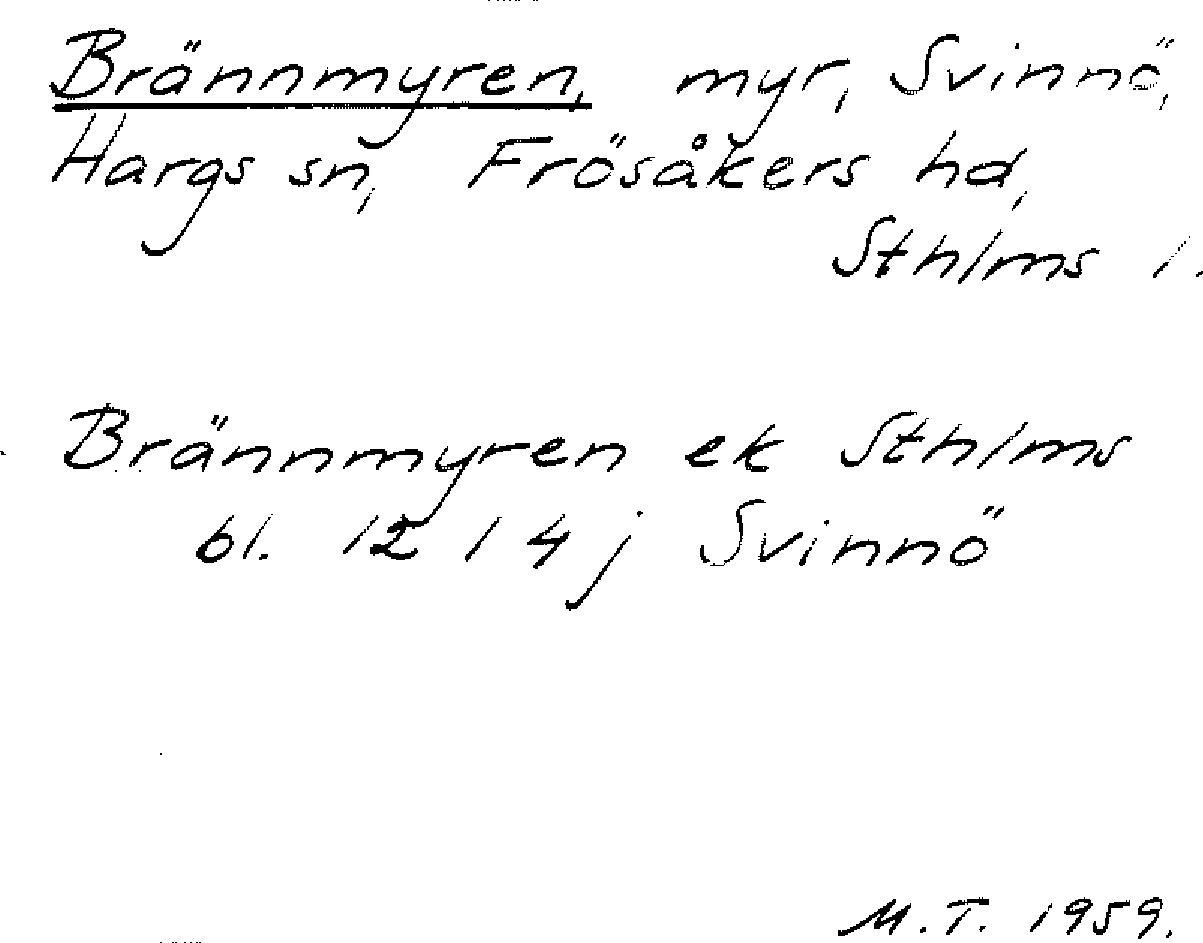 Brännmyren, myr, Svinnö,
Hargs sn, Frösåkers hd,
Sthlms l.
Brännmyren ek Sthlms
bl. 12 1 4 j Svinnö
M.T. 1959.